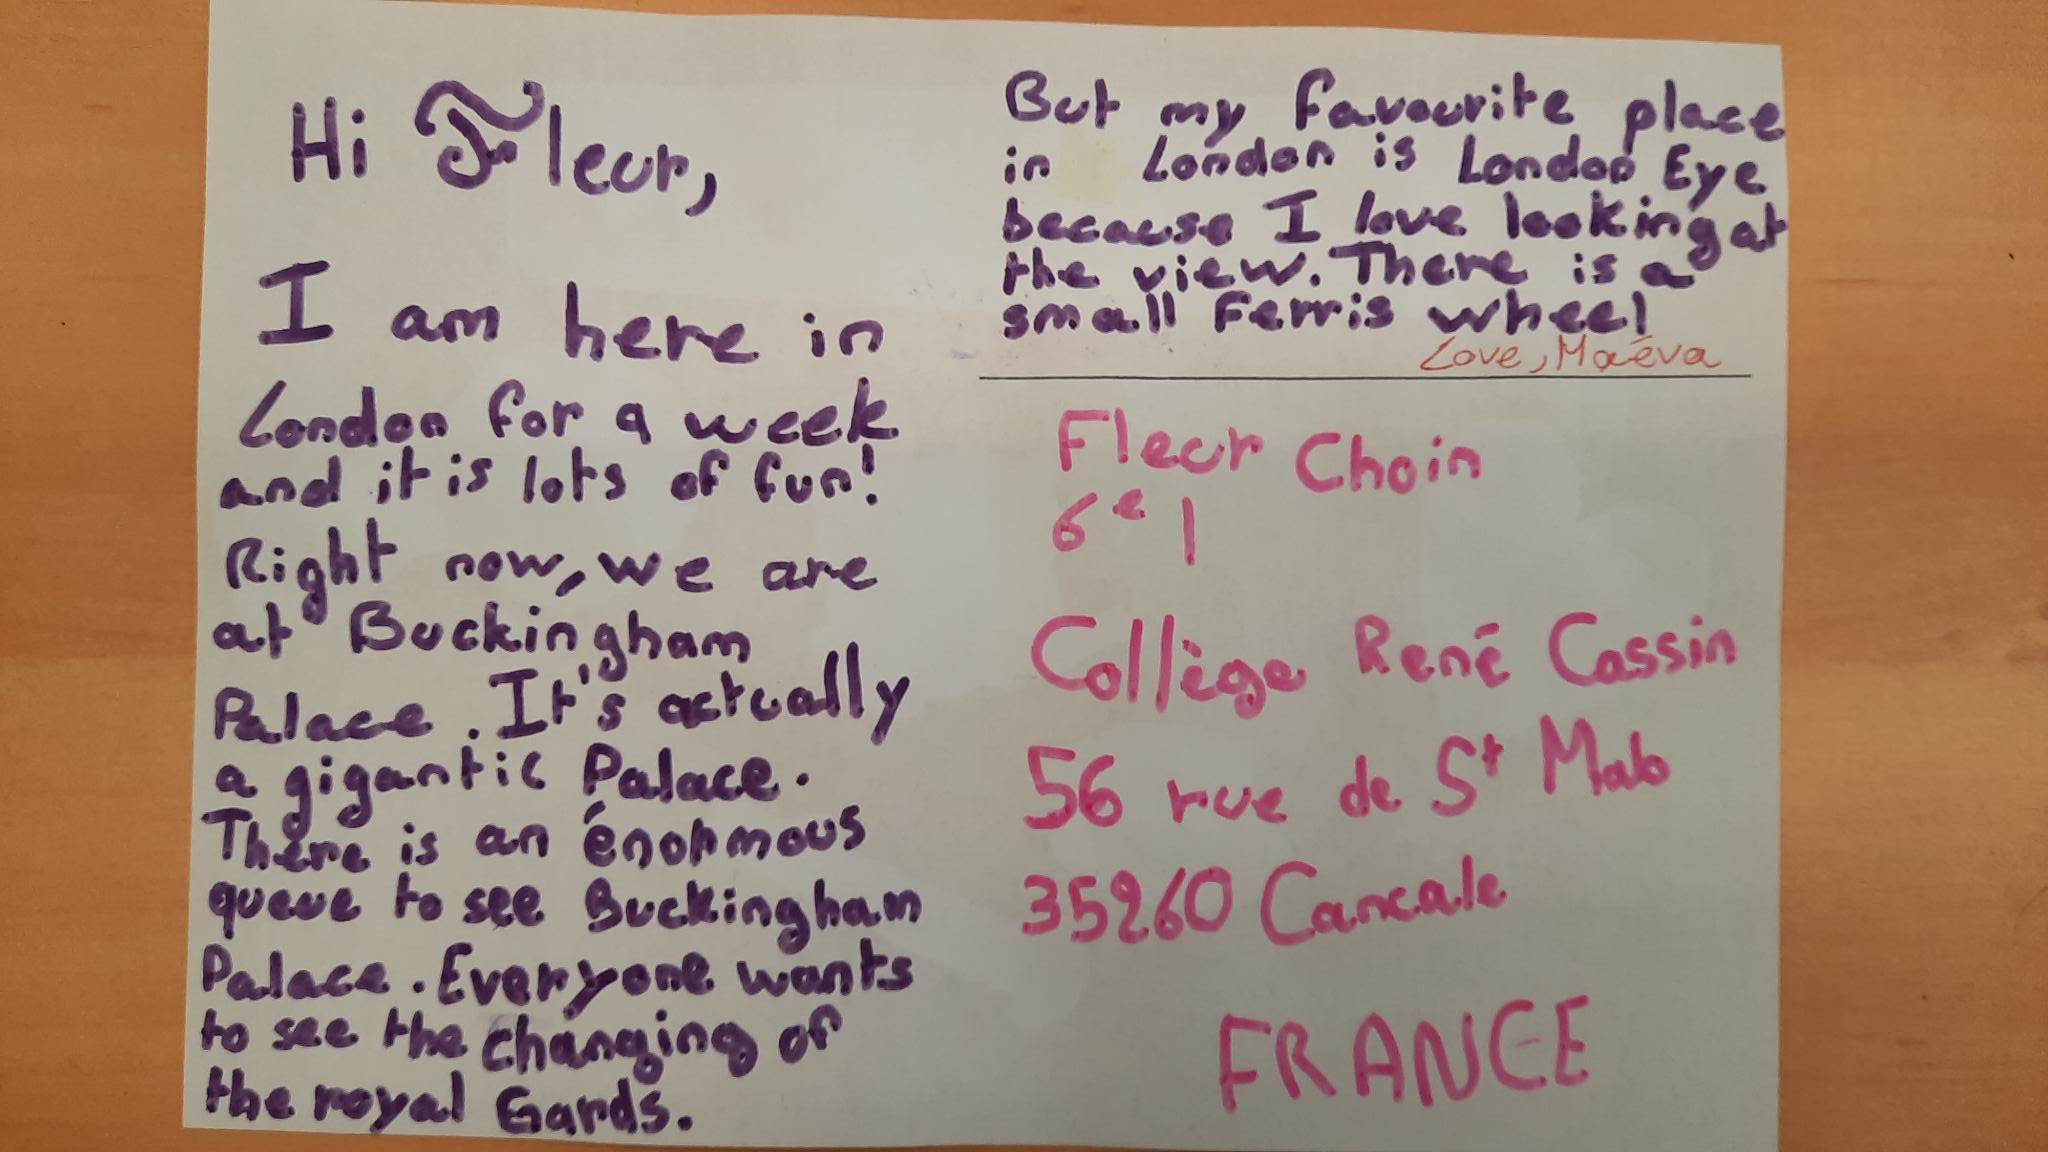 Hi Fleur,
I am here in
London for a week
and it is lots of fun!
Right now, we are
at Buckingham
Palace. It's actually
a gigantic Palace.
There is an énormous
queue to see Buckingham
Palace. Everyone wants
to see the changing of
the royal Gards.
But my favourite place
in London is London Eye
because I love looking at
the view. There is a
small Ferris wheel
Love, Maéva
Fleur Choin
6e 1
Collège René Cassin
56 rue de St Malo
35260 Cancale
FRANCE